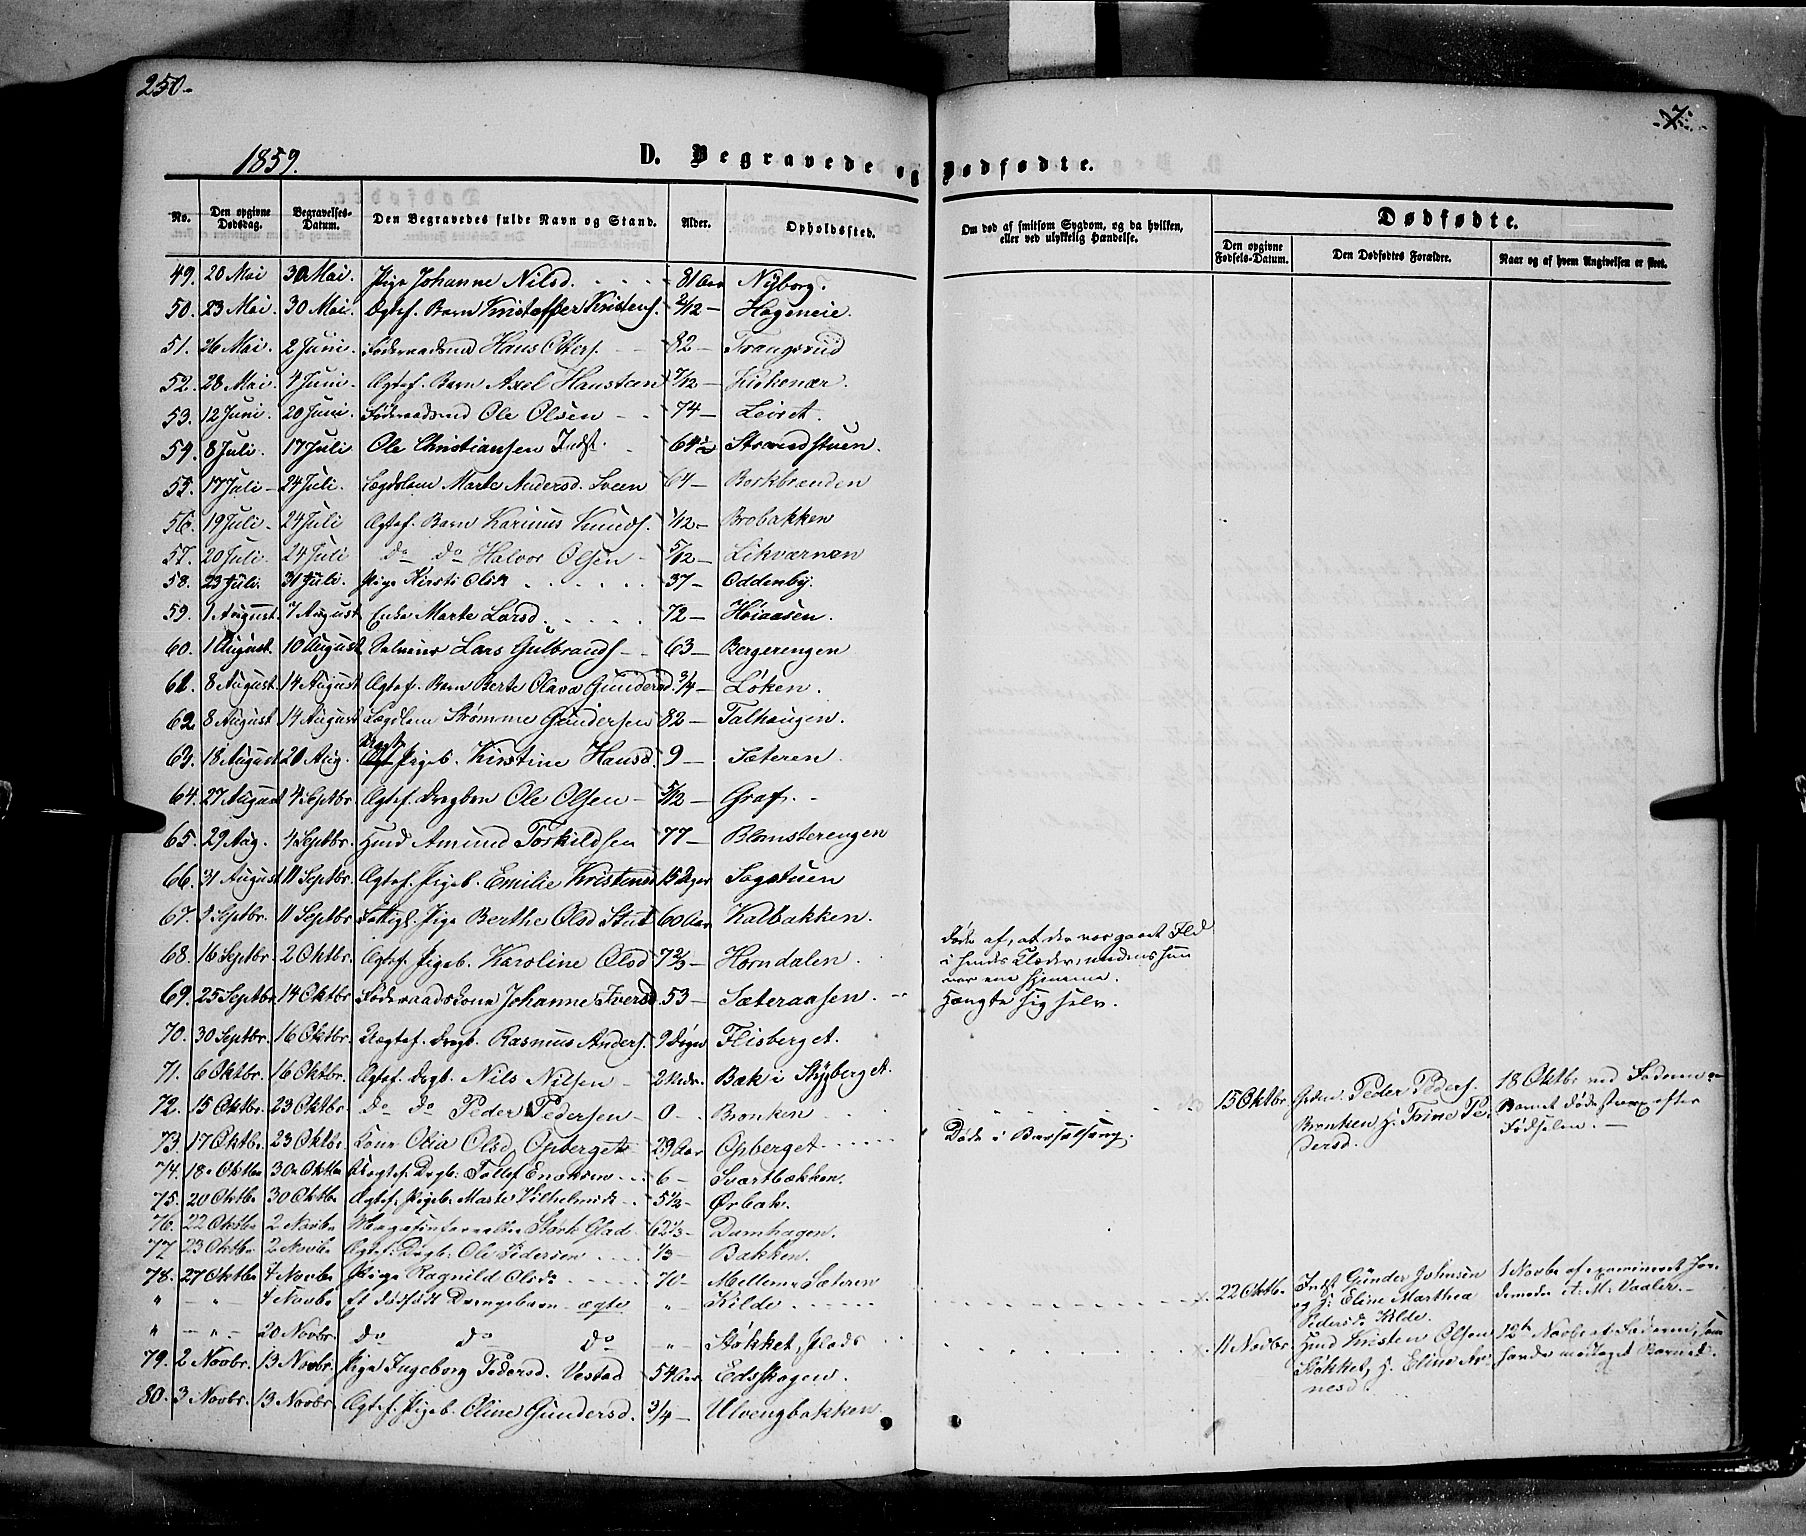 250.
7.
1859.
D. Begravede og Dødfødte.
No. Den opgivne Dødsdag. Begravelses-Datum. Den Begravedes fulde Navn og Stand. Alder. Opholdssted. Om død af smitsom Sygdom, og da hvilken, eller ved ulykkelig Hændelse. Dødfødte.
Den opgivne Fødsels-Datum. Den Dødfødtes Forældre. Naar og af hvem Angivelsen er skeet.
49. 20 Mai 30 Mai. Pige Johanne Nilsd. 81 Aar Nyborg.
50. 23 Mai 30 Mai. Ægtef. Barn Kristoffer Kristens. 2/12 — Hageneie.
51. 26 Mai. 2 Juni. Føderaadsmd Hans Olsers. 82 — Trangsrud
52. 28 Mai. 4 Juni. Ægtef. Barn Axel Hausteen 7/12 — Kirkenær.
53. 12 Juni. 20 Juni. Føderaadsmd Ole Olsen 74 — Leiret.
54. 8 Juli. 17 Juli Ole Christiansen Indst. 64 1/2 Strandstuen.
55. 17 Juli — 24 Juli. Lægdslem Marte Andersd. Sveen 64 — Borkbraaden
56. 19 Juli — 24 Juli Ægtef. Barn Karinus Knuds. 1/12 — Brobakken
57. 20 Juli. 24 Juli do do Halvor Olsen 5/12 — Likværnen
58. 23 Juli. 31 Juli. Pige Kirsti Olsd. 37 — Oddenby.
59. 1 August. 7 August Enke Marte Larsd. 72 — Høiaasen.
60. 1 August. 10 August Selveier Lars Gulbrands. 63 — Bergerengen
61. 8 August. 14 August Ægtef. Barn Berte Olava Gundersd. 3/4 — Løken.
62 8 August 14 August Lægdslem Strømme Gundersen 82 — Talhaugen.
63. 18 August 21 Aug. Pigeb. Kirstine Hansd. 9 — Sæteren.
64. 27 August 4 Septbr. Ægtef. Drgbrn Ole Olsen — 3/12 — Graf. —
65. 29 Aug. 4 Septbr. Hmd Amund Torkildsen 77 — Blomsterengen
66. 31 August 11 Septbr. Ægtef. Pigeb. Emilie Kristensd 15 Dger Sagstuen
67. 5 Septbr. 11 Septbr. Fattigl. Pige Berthe Olsd Stut 60 Aar Kalbakken.
68. 16 Septbr. 2 Oktbr. Ægtef. Pigeb. Karoline Olsd 7 2/3 — Horndalen. Døde af, at der var gaaet Ild
i hendes Klæder, medens hun
var ene hjemme.
69. 25 Septbr 14 Oktbr. Føderaadskone Johanne Iversd 53 — Sæteraasen. Hængte sig selv.
70. 30 Septbr. 16 Oktbr. Uægtef. Drgb. Rasmus Anders. 9 Døgn Flisberget.
71. 6 Oktbr. 16 Oktbr. Ægtef. Drgb. Nils Nilsen 2 Mdr. Bæk i Skyberget.
72. 15 Oktbr. 23 Oktbr. do do Peder Pedersen 0 — Bronken 15 Oktbr Grdm. Peder Peders. 18 Oktbr ved Faderen —
Bronken H. Trine Pe- Barnet døde strax efter
dersd. Fødselen. —
73. 17 Oktbr. 23 Oktbr. Kone Olia Olsd Opberget 29 Aar Opberget Døde i Barselseng.
74. 18 Oktbr 30 Oktbr Uægtef. Drgb: Tollef Eriksen 6 — Svartbækken.
75. 20 Oktbr 30 Oktbr Ægtef. Pigeb. Marte Vilhelmsd. 5 1/2 — Ørbak.
76. 22 Oktbr 2 Novbr Magasinforvalter Størk Glad. 62 1/3 — Damhagen.
77 23 Oktbr 2 Novbr Ægtef. Drgb: Ole Pedersen 1/3 — Bakken.
78. 27 Oktbr 4 Novbr Pige Ragnild Olsd. 70 — Mellem Sæteren
" — " — 4 Novbr Et dødfødt Drengebarn ægte " Kilde. 22 Oktbr. Indst Gunder Johnsen 1 Novbr af examineret Jor-
og H: Eline Marthea demoder A. M. Vaaler. —
Pedersd. Kilde.
" — " — 20 Novbr. do do do — " — Støkket, Plads 11 Novbr. Hmd Kristen Olsen 12te Novbr af Faderen, som
Støkket, H. Eline Ar- havde modtaget Barnet.
nesd.
79. 2 Novbr. 13 Novbr. Pige Ingeborg Pedersd. Vestad 54 Aar Edsskogen.
80. 3 Novbr. 13 Novbr. Ægtef. Pigeb. Oline Gundersd. 3/4 — Ulvengbakken.